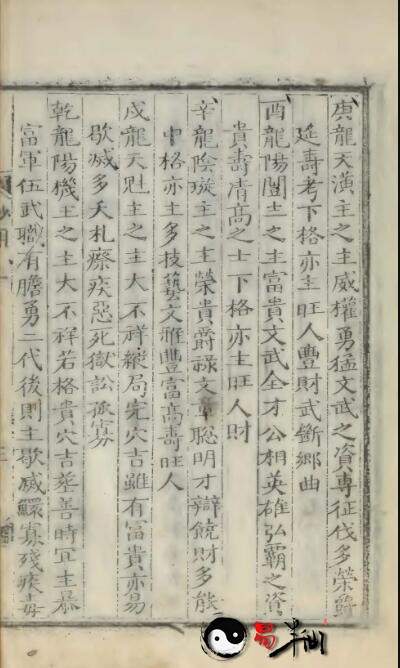 庚龍天潢主之主威權勇猛文武之資專征伐多榮爵
延壽考下格亦主旺人豐財武斷鄉曲
酉龍陽闓主之主富貴文武全才公相英雄弘霸之資
貴壽清高之士下格亦主旺人財
辛龍陰璇主之主榮貴爵祿文章聰明才辯饒財多能
中格亦主多技藝文雅豐富高壽旺人
戌龍天魁主之主大不祥縱局完穴吉雖有富貴亦易
歇滅多夭札瘵疾惡死獄訟孤寡
乾龍陽機主之主大不祥若格貴穴吉乘善時冝主暴
富軍伍武職有膽勇二代後則主歇滅鰥寡殘疾毒
易